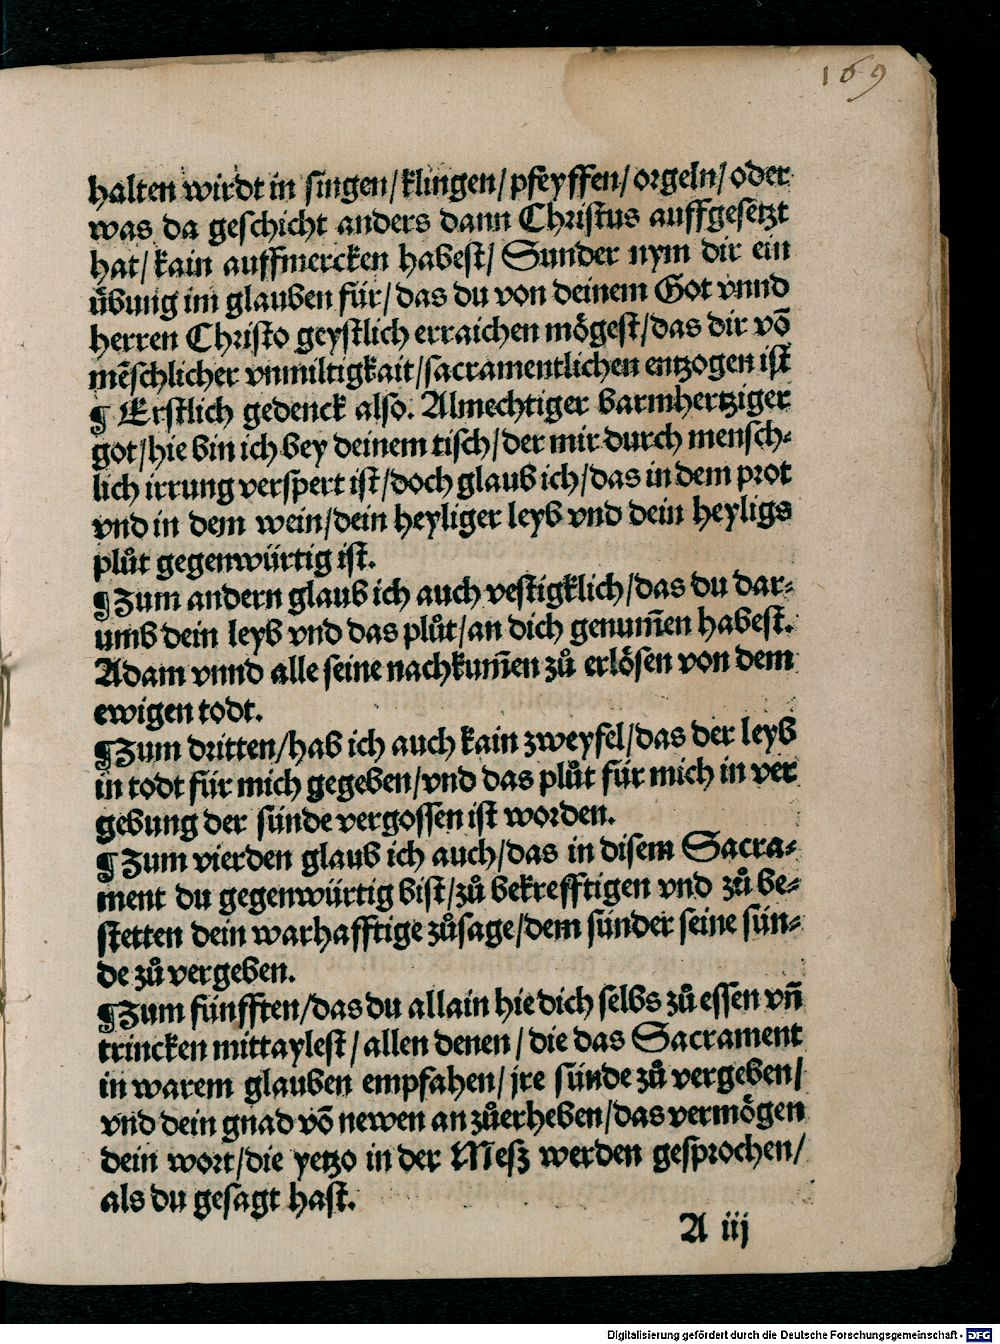 169
halten wirdt in singen/klingen/pfeyffen/orgeln/oder
was da geschicht anders dann Christus auffgesetzt
hat/kain auffmercken habest/ Sunder nym dir ein
übung im glauben für/das du von deinem Got vnnd
herren Christo geystlich erraichen mögest/das dir võ
mẽschlicher vnmiltigkait/sacramentlichen entzogen ist
¶ Erstlich gedenck also. Almechtiger barmhertziger
got/hie bin ich bey deinem tisch/der mir durch mensch⸗
lich irrung verspert ist/doch glaub ich/das in dem prot
vnd in dem wein/dein heyliger leyb vnd dein heyligs
plůt gegenwürtig ist.
¶Zum andern glaub ich auch vestigklich/das du dar⸗
umb dein leyb vnd das plůt/an dich genum̃en habest.
Adam vnnd alle seine nachkum̃en zů erlösen von dem
ewigen todt.
¶Zum dritten/hab ich auch kain zweyfel/das der leyb
in todt für mich gegeben/vnd das plůt für mich in ver
gebung der sünde vergossen ist worden.
¶Zum vierden glaub ich auch/das in disem Sacra⸗
ment du gegenwürtig bist/zů bekrefftigen vnd zů be⸗
stetten dein warhafftige zůsage/dem sünder seine sün⸗
de zů vergeben.
¶Zum fünfften/das du allain hie dich selbs zů essen vñ
trincken mittaylest/allen denen/die das Sacrament
in warem glauben empfahen/jre sünde zů vergeben/
vnd dein gnad võ newen an zůerheben/das vermögen
dein wort/die yetzo in der Mesz werden gesprochen/
als du gesagt hast.
A iij
Digitalisierung gefördert durch die Deutsche Forschungsgemeinschaft - DFG